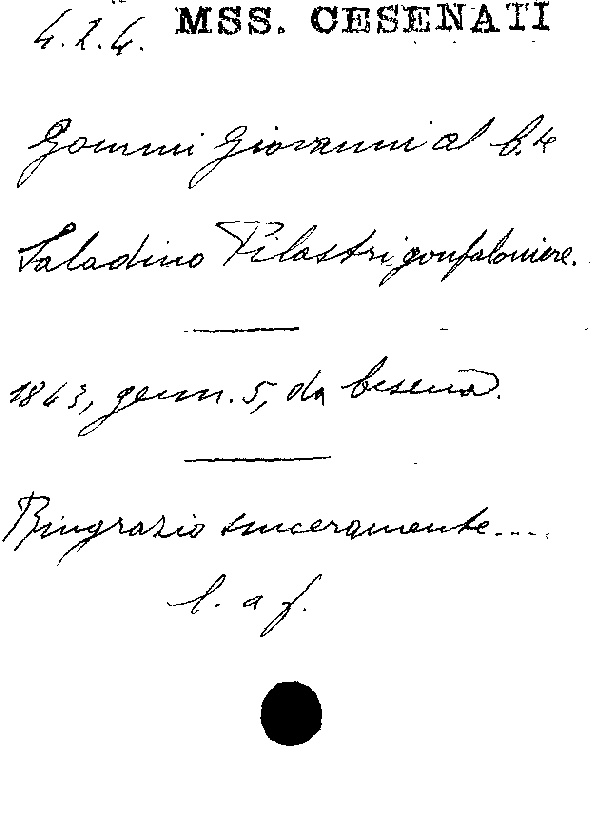 4.2.4. MSS. CESENATI
Gommi Giovanni al C.te
Saladino Pilastri gonfaloniere.
1843, genn. 5, da Cesena.
Ringrazio sinceramente....
l. a f.